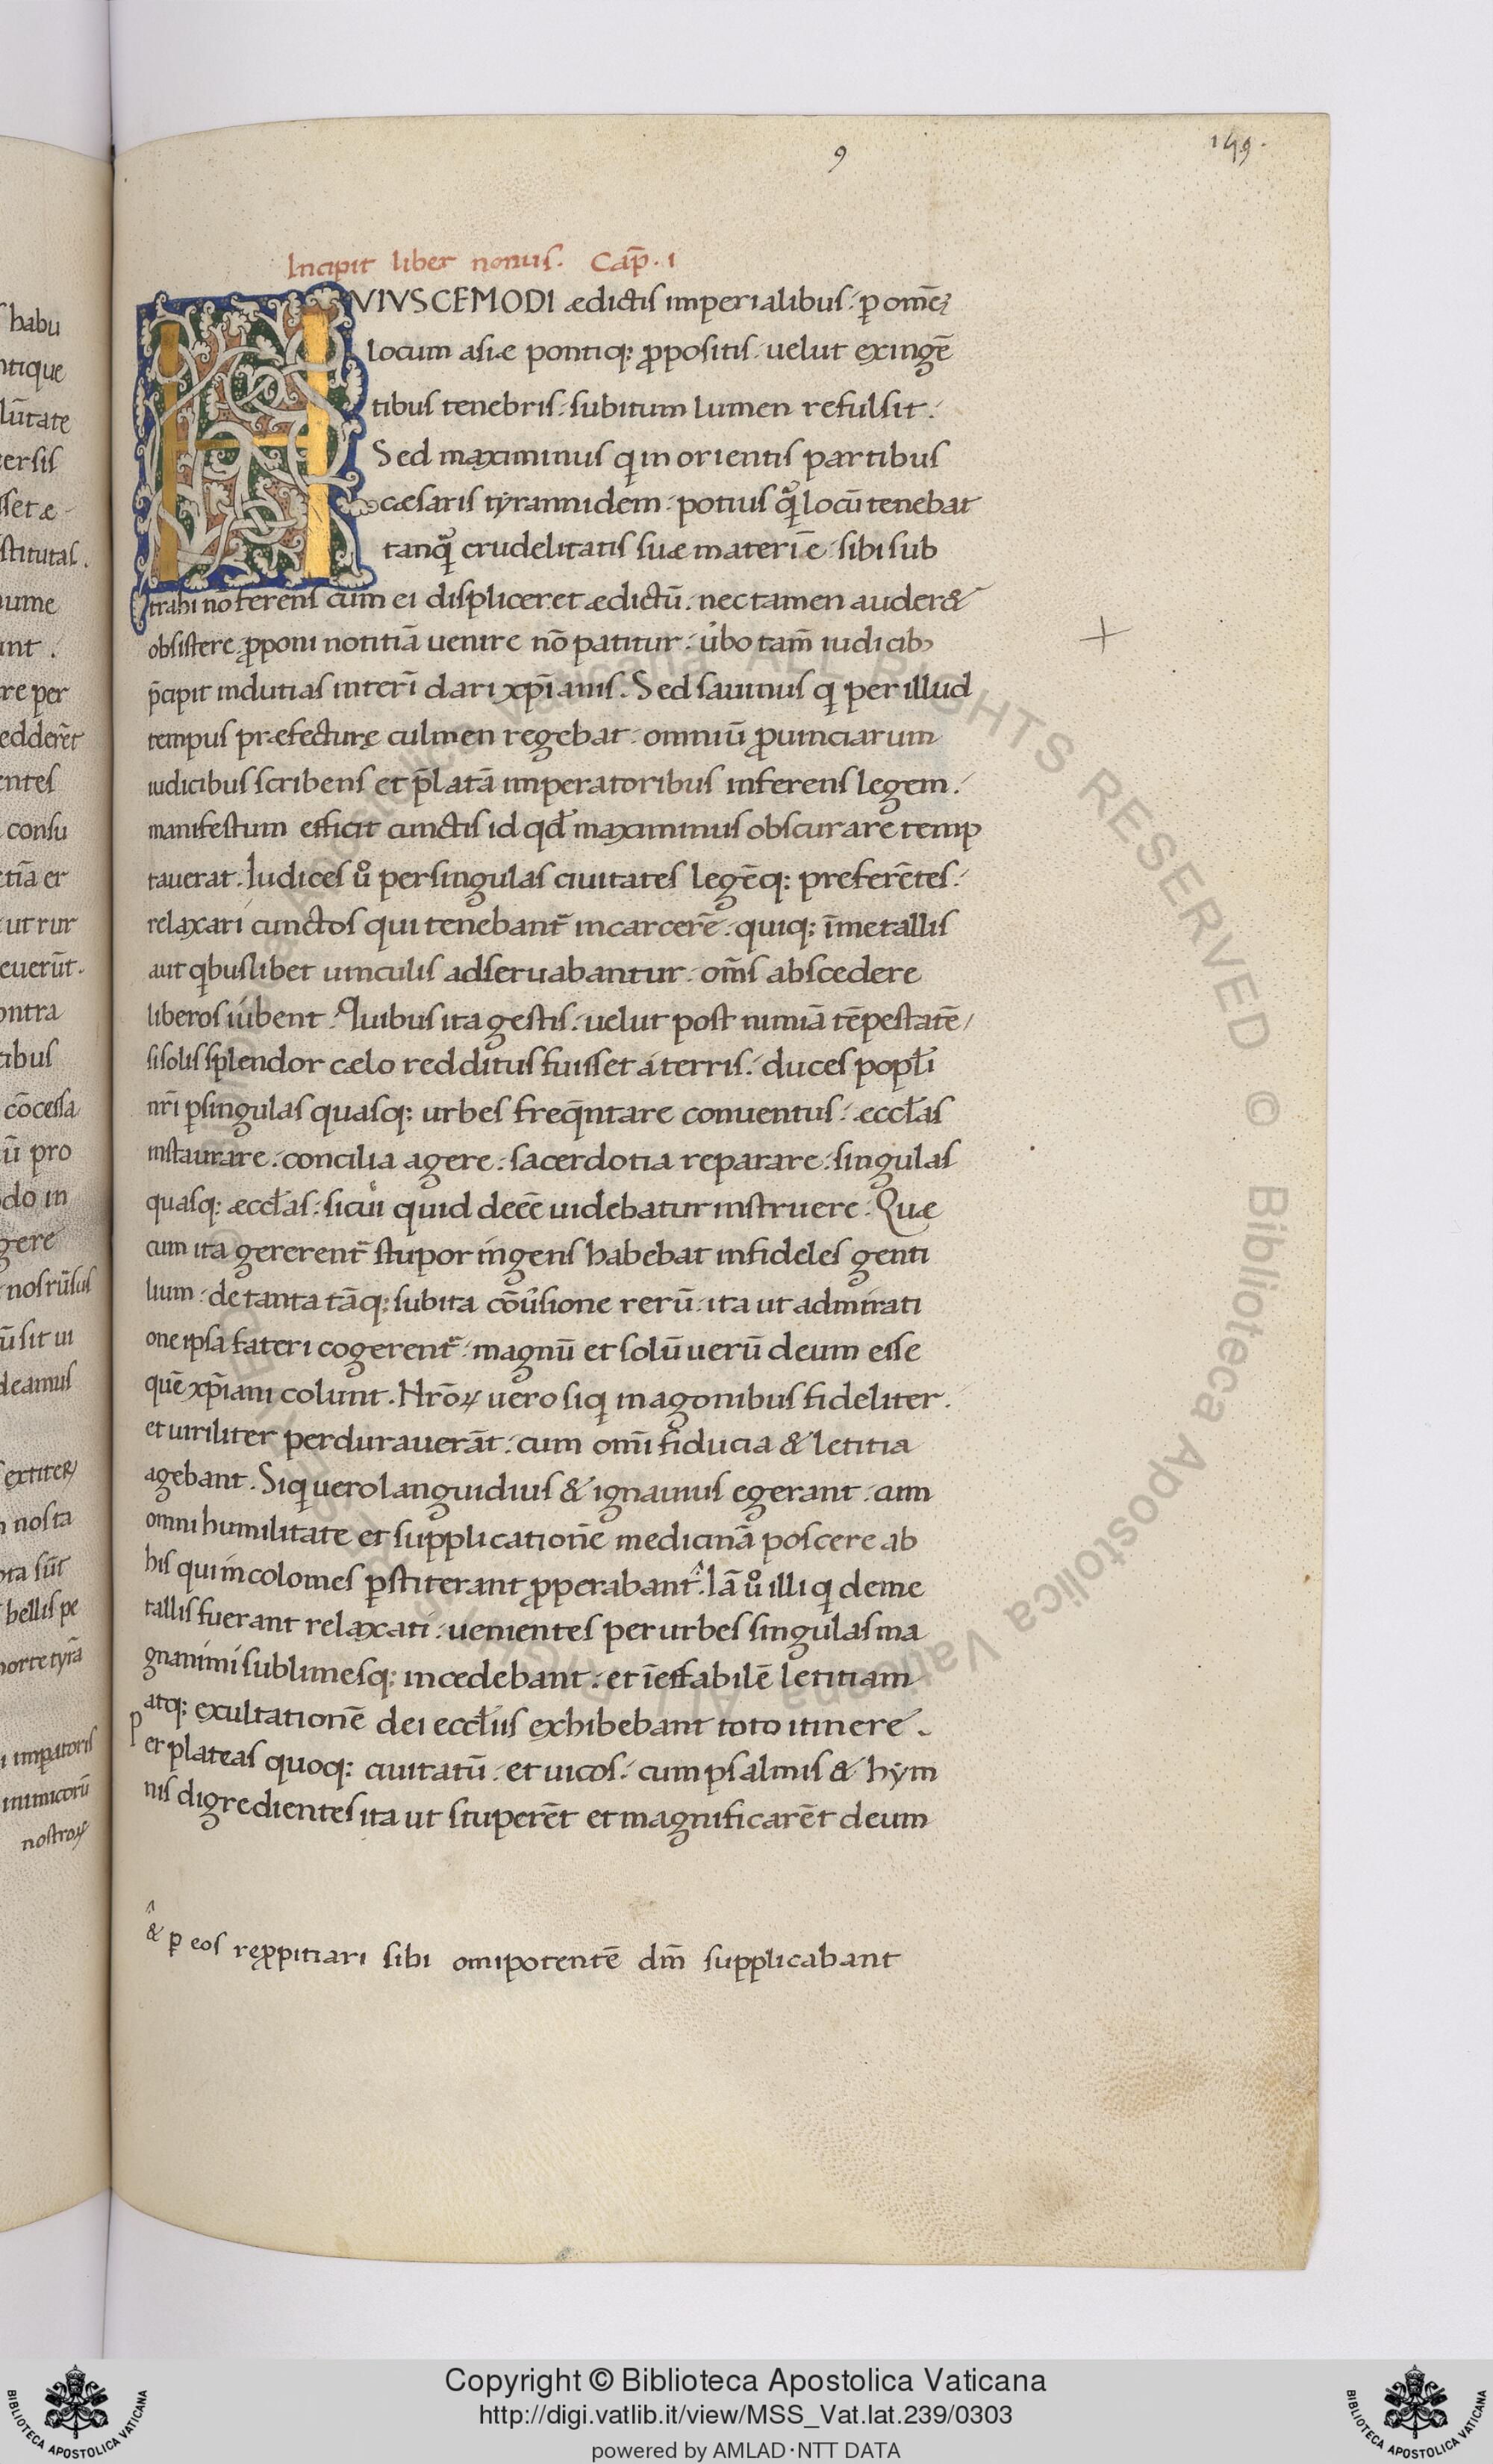 9
149.
Incipit liber nonus. Cap̄. i
HVIVSCEMODI ædictis imperialibus ꝑ omēꝫ
locum asiæ pontiq; ꝓpositis velut exingē
tibus tenebris subitum lumen refulsit.
Sed maximinus q in orientis partibus
cæsaris tyrannidem potius q̃ locū tenebat
tanq̃ crudelitatis suæ materiē sibi sub
trahi nō ferens cum ei displiceret ædictū. nec tamen auder&
obsistere ꝓponi notitiā uenire nō patitur. ůbo tam̄ iudicibꝰ
p̄cipit indutias interī dari xp̄ianis. Sed sauinus q per illud
tempus præfecturę culmen regebat omniū ꝓuinciarum
iudicibus scribens et p̄latā imperatoribus inferens legem.
manifestum efficit cunctis id qd̄ maximinus obscurare temp
tauerat. Iudices ů per singulas ciuitates legēq; preferētes.
relaxari cunctos qui tenebant̄ in carcerē. quiq; ī metallis
aut qbuslibet uinculis adseruabantur. om̄s abscedere
liberos iubent. Quibus ita gestis. uelut post nimiā tēpestatē
si solis splendor cælo redditus fuisset á terris. duces popłi
nr̄i ꝑsingulas quasq; urbes freq̄ntare conuentus. æccłas
instaurare. concilia agere. sacerdotia reparare. singulas
quasq; æccłas. sicui quid deēe uidebatur instruere. Quę
cum ita gererent̄ stupor ingens habebat infideles genti
lium. de tanta tāq; subita cōůsione rerū. ita ut admirati
one ipsa fateri cogerent̄. magnū et solū uerū deum esse
quē xp̄iani colunt. Nr̄oꝝ uero siq in agonibus fideliter.
et uiriliter perdurauerāt. cum om̄i fiducia & letitia
agebant. Siq uero languidius & ignauius egerant. cum
omni humilitate et supplicatione medicinā poscere ab
his qui incolomes ꝑstiterant ꝓperabant. Iā ů illi q de me
tallis fuerant relaxati. uenientes per urbes singulas ma
gnanimi sublimesq; incedebant. et īeffabilē letitiam
atq; exultationē dei eccłiis exhibebant toto itinere.
Per plateas quoq; ciuitatū. et uicos. cum psalmis & hym
nis digredientes ita ut stuperēt et magnificarēt deum
& ꝑ eos reꝓpitiari sibi omipotentē dm̄ supplicabant
habu
ntique
lūtate
ersis
sset æ
stitutas.
ume
nt.
re per
edderēt
entes
consu
etiā er
ut rur
euerūt.
ontra
tibus
cōcessa
ū pro
do in
gere
nos rūsus
ū sit ui
deamus
extiteꝝ
nosta
ta sūt
bellis pe
morte tyrā
i imꝑatoris
inimicorū
nostroꝝ
Biblioteca Apostolica Vaticana ALL RIGHTS RESERVED ©
BIBLIOTECA APOSTOLICA VATICANA
Copyright © Biblioteca Apostolica Vaticana
http://digi.vatlib.it/view/MSS_Vat.lat.239/0303
powered by AMLAD·NTT DATA
BIBLIOTECA APOSTOLICA VATICANA